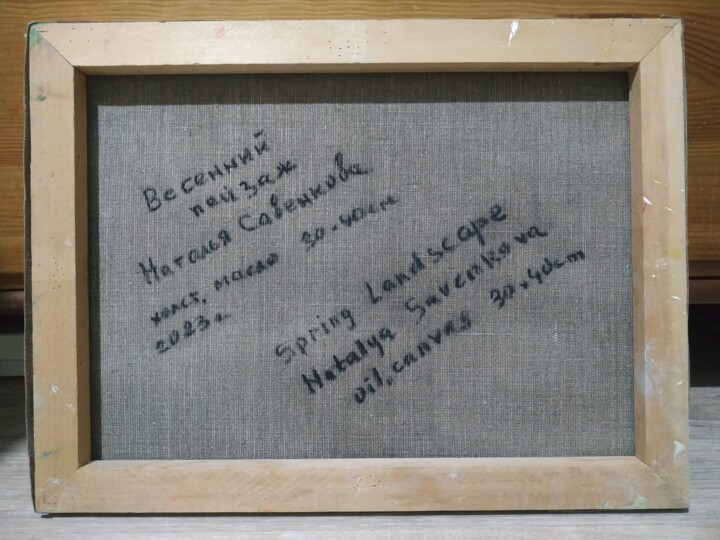 Весенний
пейзаж
Наталья Савенкова
холст, масло 30×40см
2023г.
Spring Landscape
Natalya Savenkova
oil, canvas 30×40cm